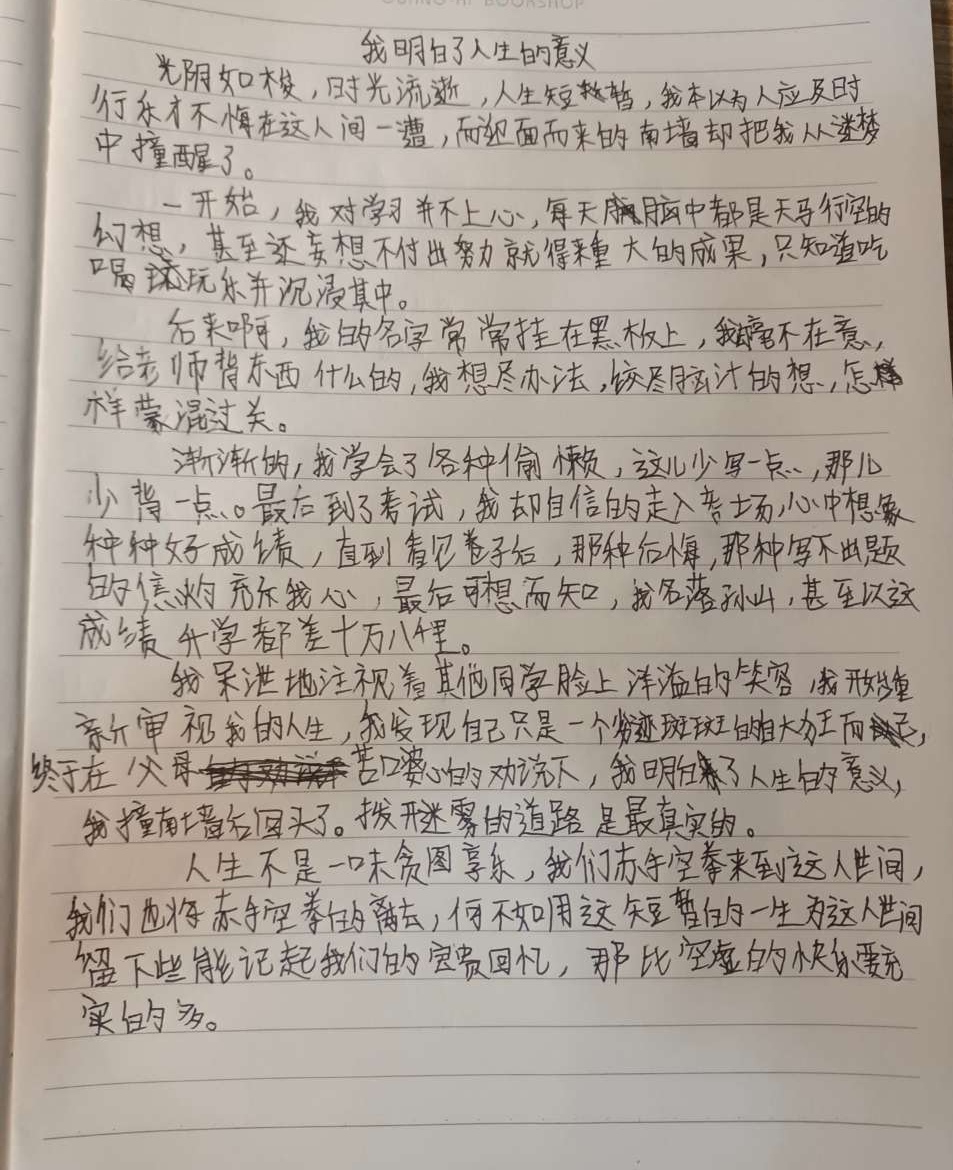 我明白了人生的意义
光阴如梭,时光流逝,人生短暂,我本以为人应及时
行乐才不悔在这人间一遭,而迎面而来的南墙却把我从迷梦
中撞醒了。
一开始,我对学习并不上心,每天脑中都是天马行空的
幻想,甚至还妄想不付出努力就得来重大的成果,只知道吃
喝玩乐并沉浸其中。
后来啊,我的名字常常挂在黑板上,我毫不在意,
给老师背东西什么的,我想尽办法,绞尽脑汁的想,怎
样蒙混过关。
渐渐的,我学会了各种偷懒,这儿少写一点,那儿
少背一点。最后到了考试,我却自信的走入考场,心中想象
种种好成绩,直到看见卷子后,那种后悔,那种写不出题
的焦灼充斥我心,最后可想而知,我名落孙山,甚至以这
成绩升学都差十万八千里。
我呆泄地注视着其他同学脸上洋溢的笑容,我开始重
新审视我的人生,我发现自己只是一个劣迹斑斑的自大狂而已,
终于在父母苦口婆心的劝说下,我明白了人生的意义,
我撞南墙后回头了。拨开迷雾的道路是最真实的。
人生不是一味贪图享乐,我们赤手空拳来到这人世间,
我们也将赤手空拳的离去,何不如用这短暂的一生为这人世间
留下些能记起我们的宝贵回忆,那比空虚的快乐要充
实的多。